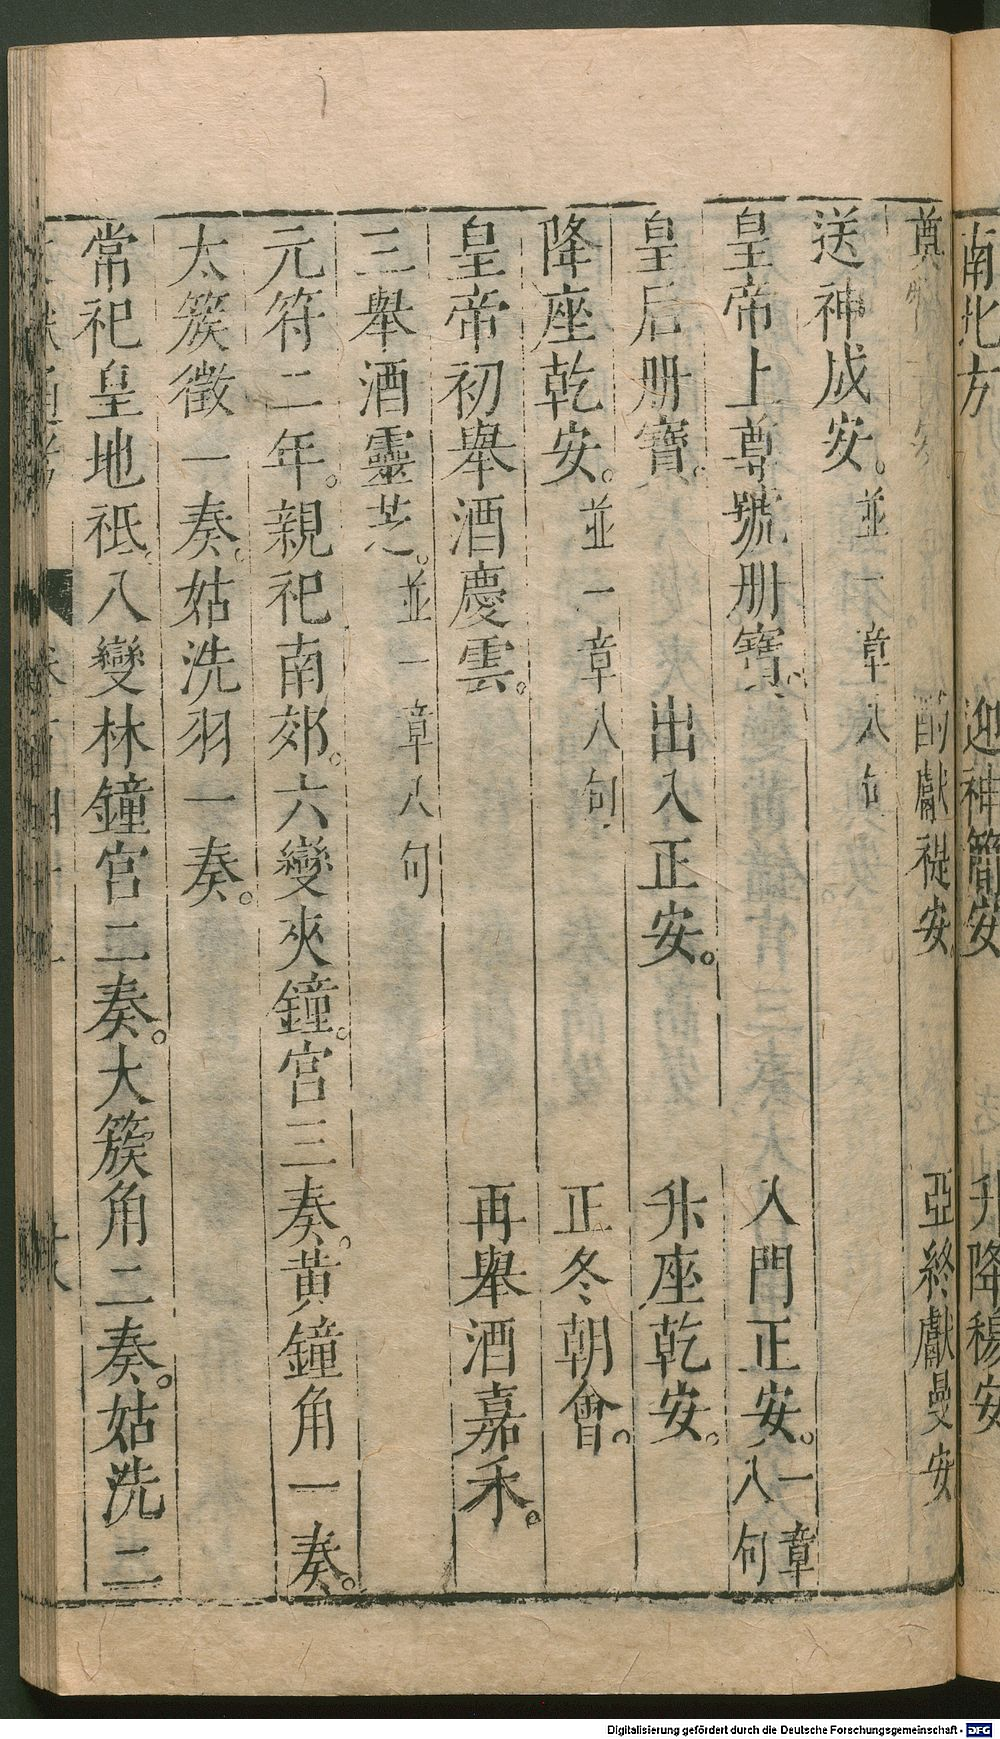 南北方 迎神簡安 升降穆安
奠幣 安 酌獻禔安 亞終獻曼安
送神成安。並一章八句
皇帝上尊號册寶。 入門正安。一章八句
皇后册寶。 出入正安。 升座乾安。
降座乾安。並一章八句 正冬朝會。
皇帝初舉酒慶雲。 再舉酒嘉禾。
三舉酒靈芝。並一章八句
元符二年。親祀南郊。六變夾鐘。宮三奏。黃鐘角一奏。
太簇徵一奏。姑洗羽一奏。
常祀皇地祇。八變林鐘宮二奏。大簇角二奏。姑洗二
Digitalisierung gefördert durch die Deutsche Forschungsgemeinschaft - DFG